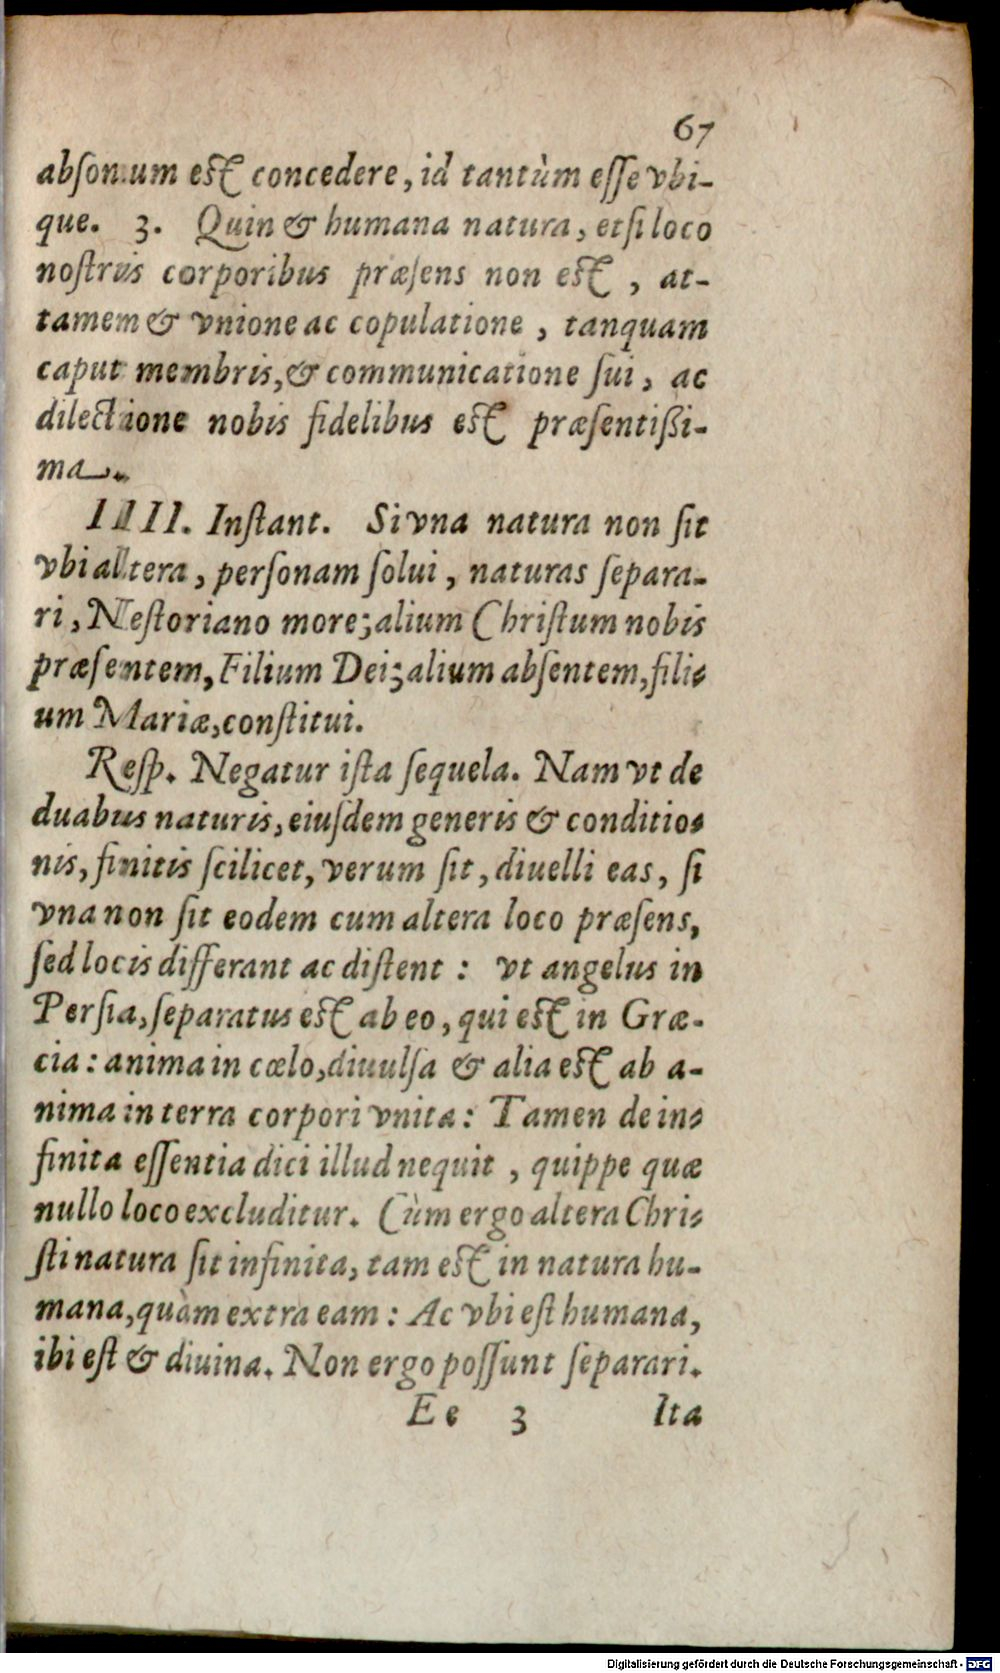 67
abſonum eſt concedere, id tantùm eſſe vbi-
que. 3. Quin & humana natura, etſi loco
noſtris corporibus præſens non eſt, at-
tamem & vnione ac copulatione, tanquam
caput membris, & communicatione ſui, ac
dilectione nobis fidelibus eſt præſentiſſi-
ma.
IIII. Inſtant. Si vna natura non ſit
vbi altera, perſonam ſolui, naturas ſepara-
ri, Neſtoriano more; alium Chriſtum nobis
præſentem, Filium Dei; alium abſentem, fili-
um Mariæ, conſtitui.
Reſp. Negatur iſta ſequela. Nam vt de
duabus naturis, eiuſdem generis & conditio-
nis, finitis ſcilicet, verum ſit, diuelli eas, ſi
vna non ſit eodem cum altera loco præſens,
ſed locis differant ac diſtent: vt angelus in
Perſia, ſeparatus eſt ab eo, qui eſt in Græ-
cia: anima in cœlo, diuulſa & alia eſt ab a-
nima in terra corpori vnita: Tamen de in-
finita eſſentia dici illud nequit, quippe quæ
nullo loco excluditur. Cùm ergo altera Chri-
ſti natura ſit infinita, tam eſt in natura hu-
mana, quàm extra eam: Ac vbi eſt humana,
ibi eſt & diuina. Non ergo poſſunt ſeparari.
Ee 3 Ita
Digitalisierung gefördert durch die Deutsche Forschungsgemeinschaft - DFG